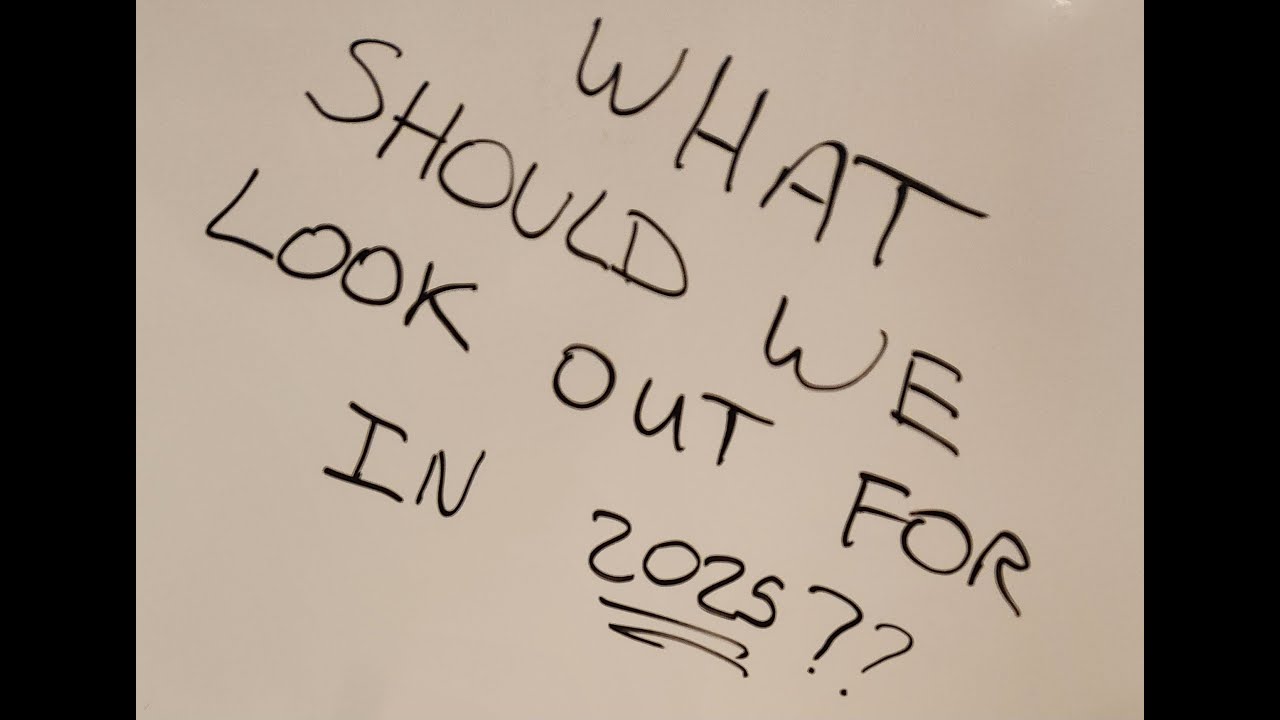 WHAT
SHOULD WE
LOOK OUT FOR
IN 2025??